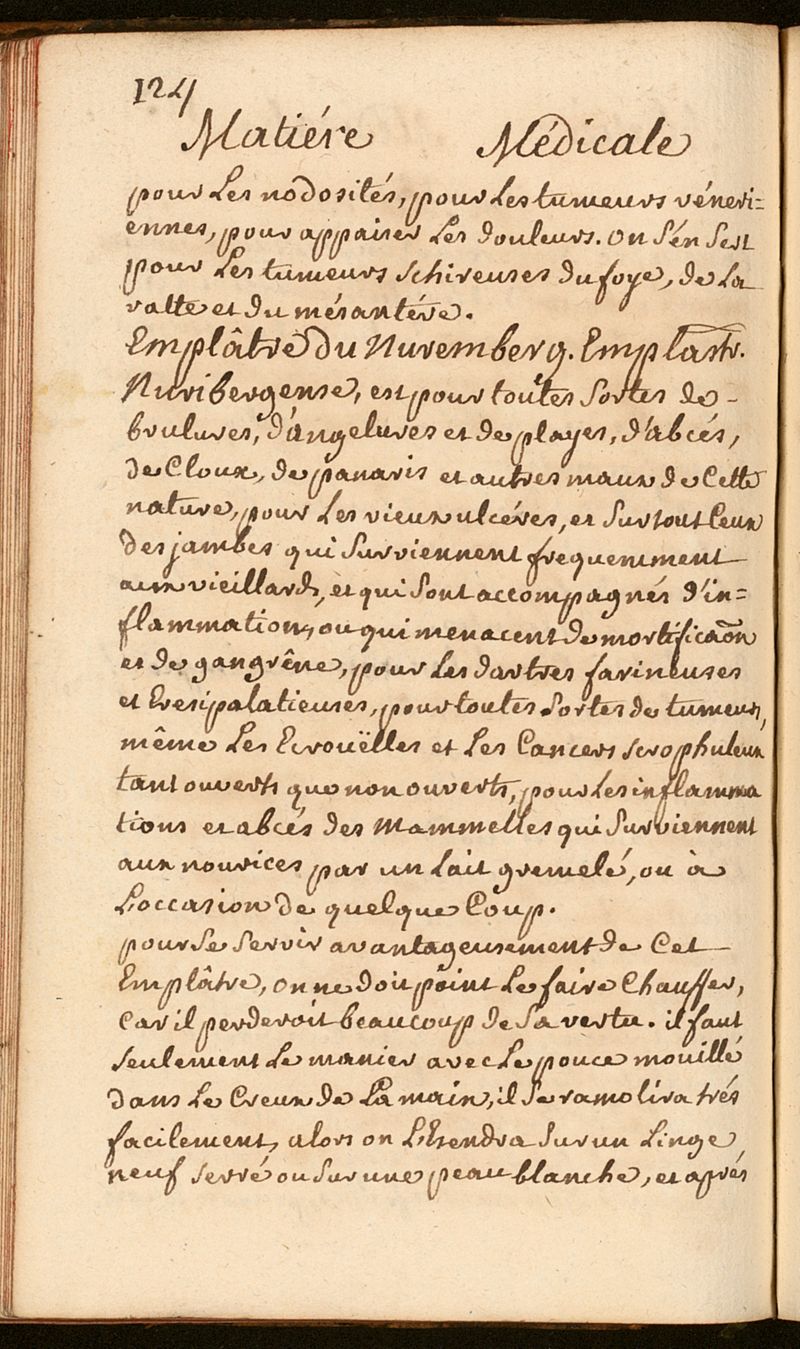 124
Matiére Médicale
pour Les nodosités, pour Les tumeurs véneri=
ennes, pour appaiser Les douleurs. on s'én sert
pour Les tumeurs schireuses du foye, de La
ratte et du mésantére.
Emplâtre du Nuremberg. Emplastr.
Nuribergense, est pour toutes sortes de -
brulures, d'àngelures et de playes, d'abcés,
de Cloux, de panaris et autres maux de Cette
nature, pour Les vieux ulcéres, et surtout Ceux
des jambes qui surviennent frequemment
aux vieillards, et qui sont accompagnés d'in=
flammation, ou qui menacent de mortificaôn
et de gangrêne, pour Les dartres farineuses
et Eresipalatieuses, pour toutes sortes de tumeurs,
même Les Ecrouëlles et Les Cancers scrophuleux
tant ouverts que non ouverts, pour Les inflamma
tions et abcés des Mammelles qui surviennent
aux nourices par un Lait grumelé, ou à
L'occasion de quelque Coup.
pour se servir avantageusement de Cet
Emplâtre, on ne doit point Le faire Chauffer,
Car il perderoit beaucoup de sa vertu. il faut
seulement Le manier avec Le pouce mouillé
dans Le Creux de La main, il se ramolira trés
facilement, alors on L'Etendra sur un Linge
neuf serré ou sur une peau blanche, et aprés